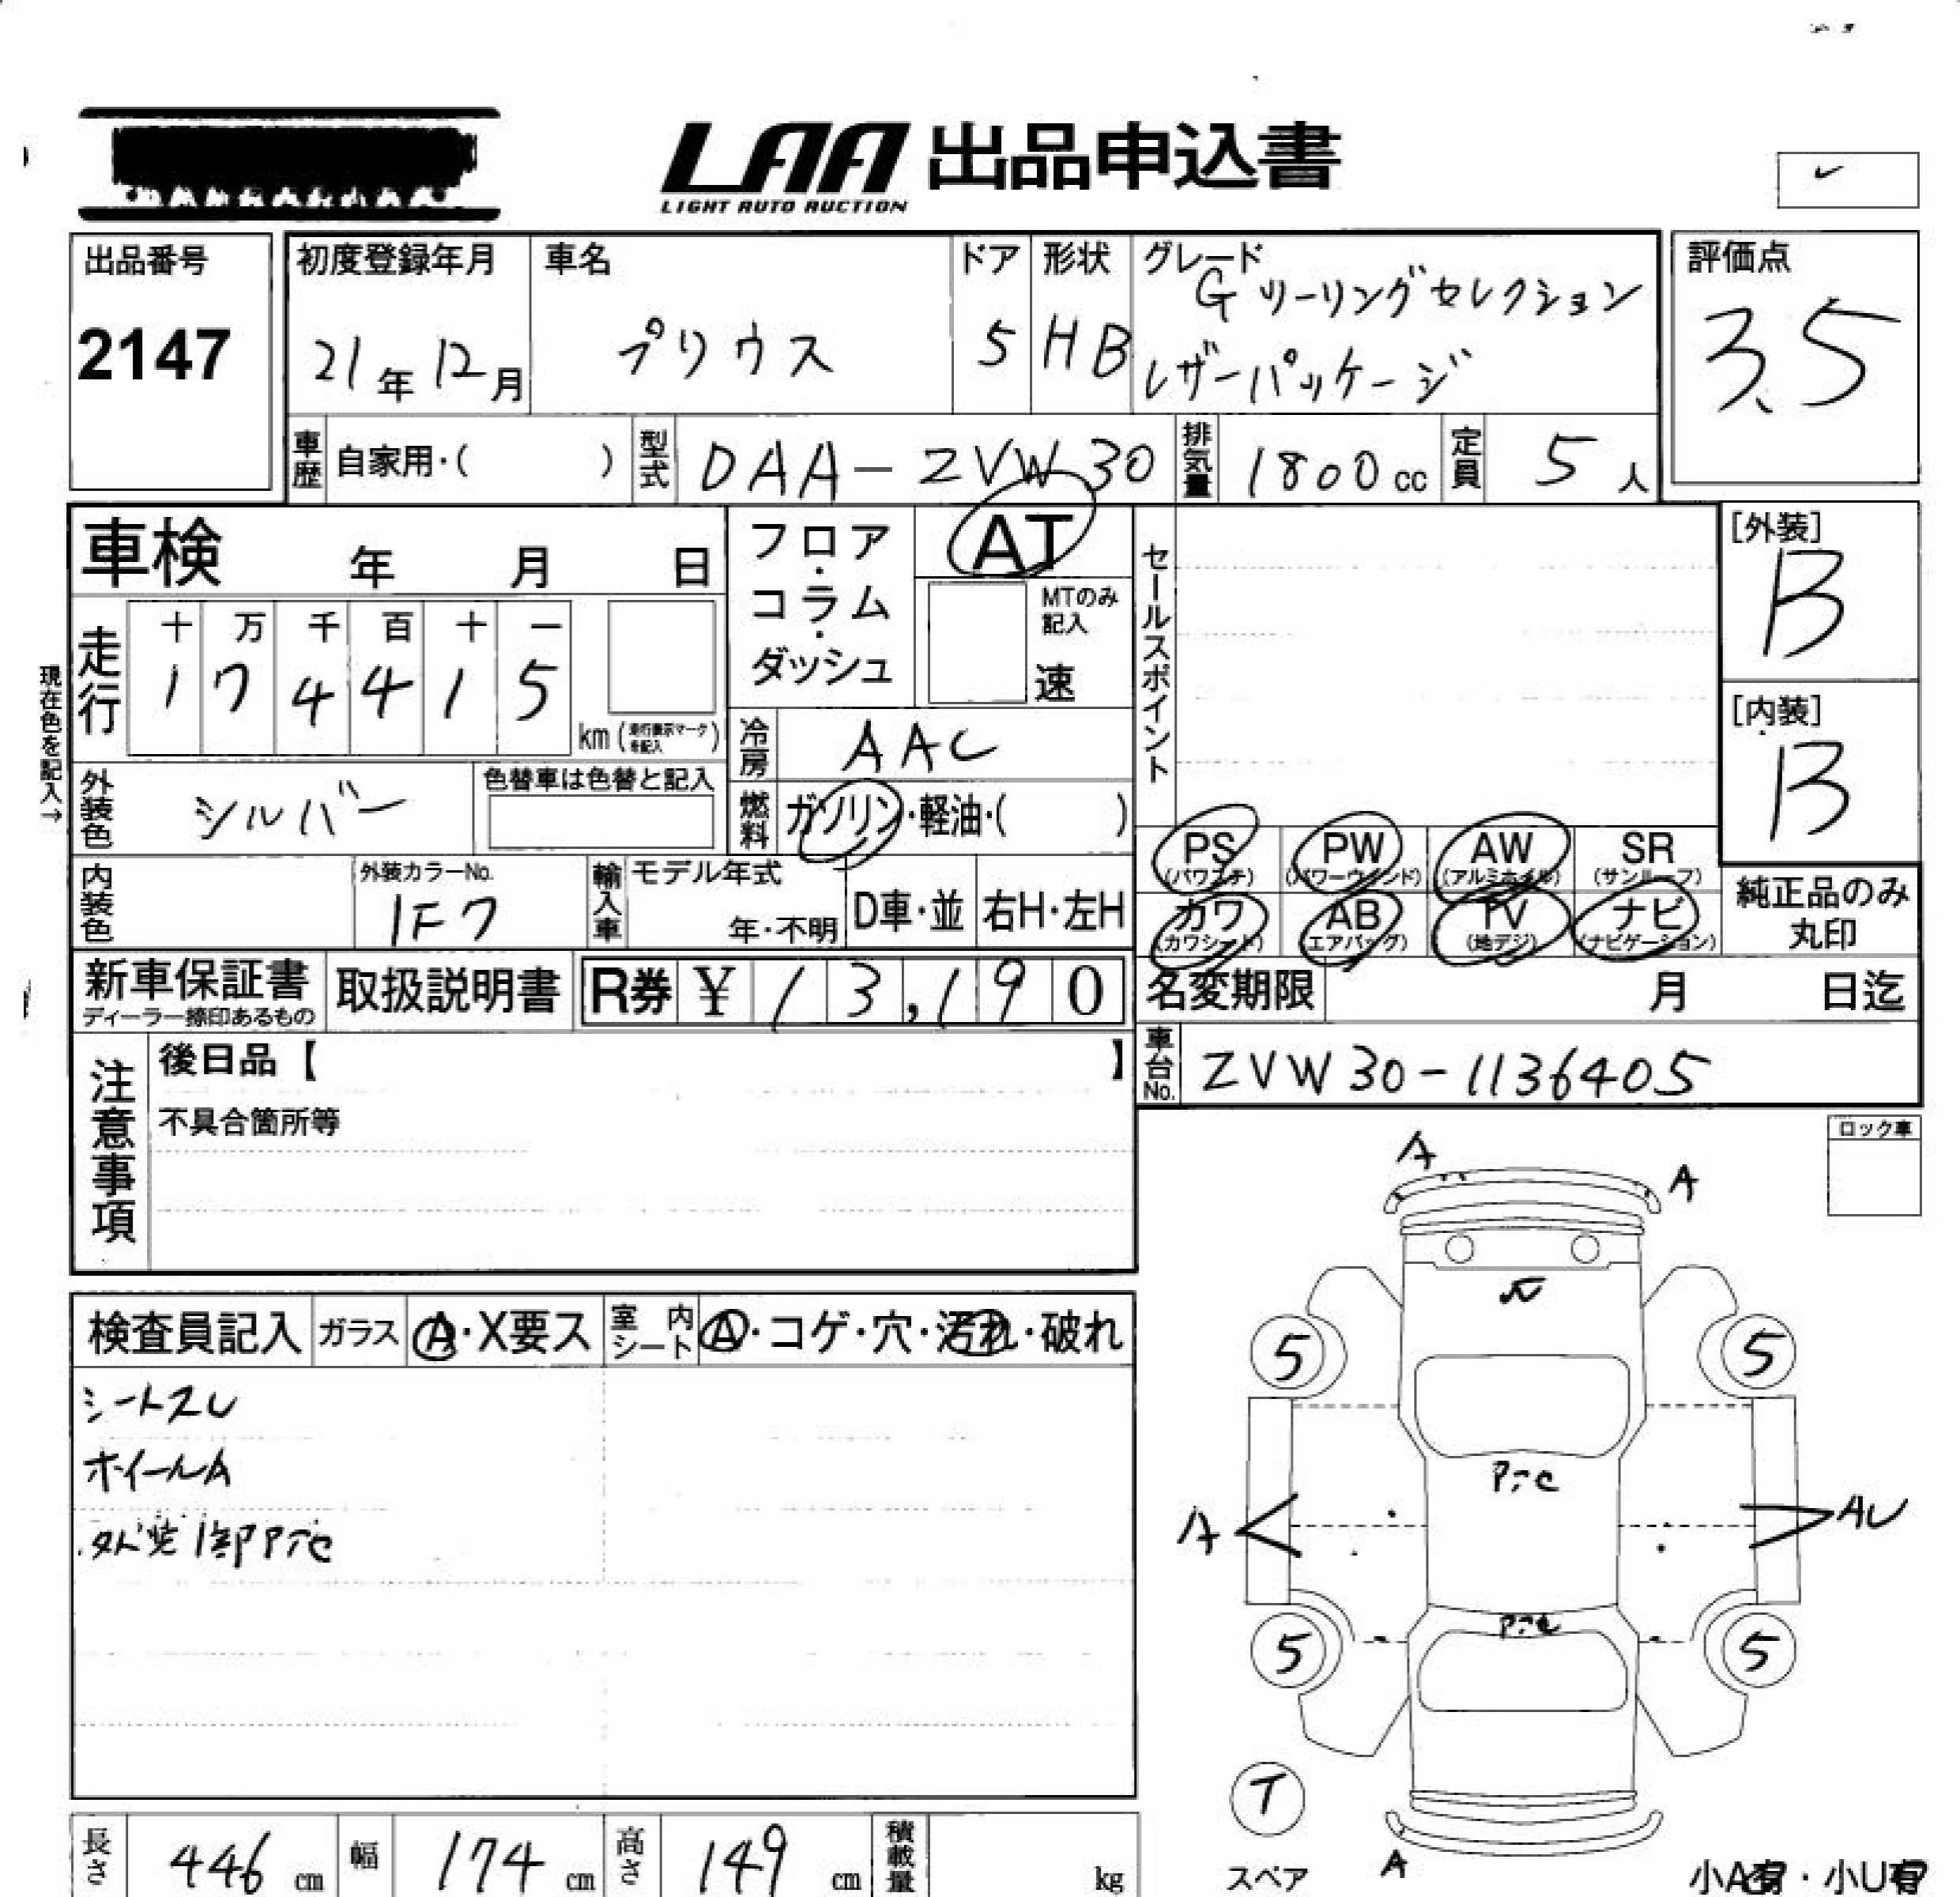 LAA 出品申込書
LIGHT AUTO AUCTION
出品番号
2147
初度登録年月
21年12月
車名
プリウス
ドア
5
形状
HB
グレード
Gツーリングセレクション
レザーパッケージ
評価点
3.5
車歴 自家用・( )
型式 DAA-ZVW30
排気量 1800cc
定員 5人
車検 年 月 日
フロア・コラム・ダッシュ
AT
MTのみ記入
速
セールスポイント
[外装]
B
[内装]
B
現在色を記入→
走行
十 万 千 百 十 一
1 7 4 4 1 5
km (走行表示マークを記入)
冷房 AAC
外装色 シルバー
色替車は色替と記入
燃料 ガソリン・軽油・( )
PS (パワステ)
PW (パワーウインド)
AW (アルミホイル)
SR (サンルーフ)
カワ (カワシート)
AB (エアバッグ)
TV (地デジ)
ナビ (ナビゲーション)
純正品のみ丸印
内装色
外装カラーNo.
1F7
輸入車
モデル年式
年・不明
D車・並
右H・左H
新車保証書
ディーラー捺印あるもの
取扱説明書
R券 ¥ 13,190
名変期限 月 日迄
車台No. ZVW30-1136405
注意事項
後日品【 】
不具合箇所等
ロック車
検査員記入
ガラス A・X要ス
室内シート A・コゲ・穴・汚れ・破れ
シートスレ
ホイールA
外装1部Pテc
A
A
5
5
Pテc
A
AU
Pテc
5
5
T
スペア
A
小A有・小U有
長さ 446cm
幅 174cm
高さ 149cm
積載量 kg